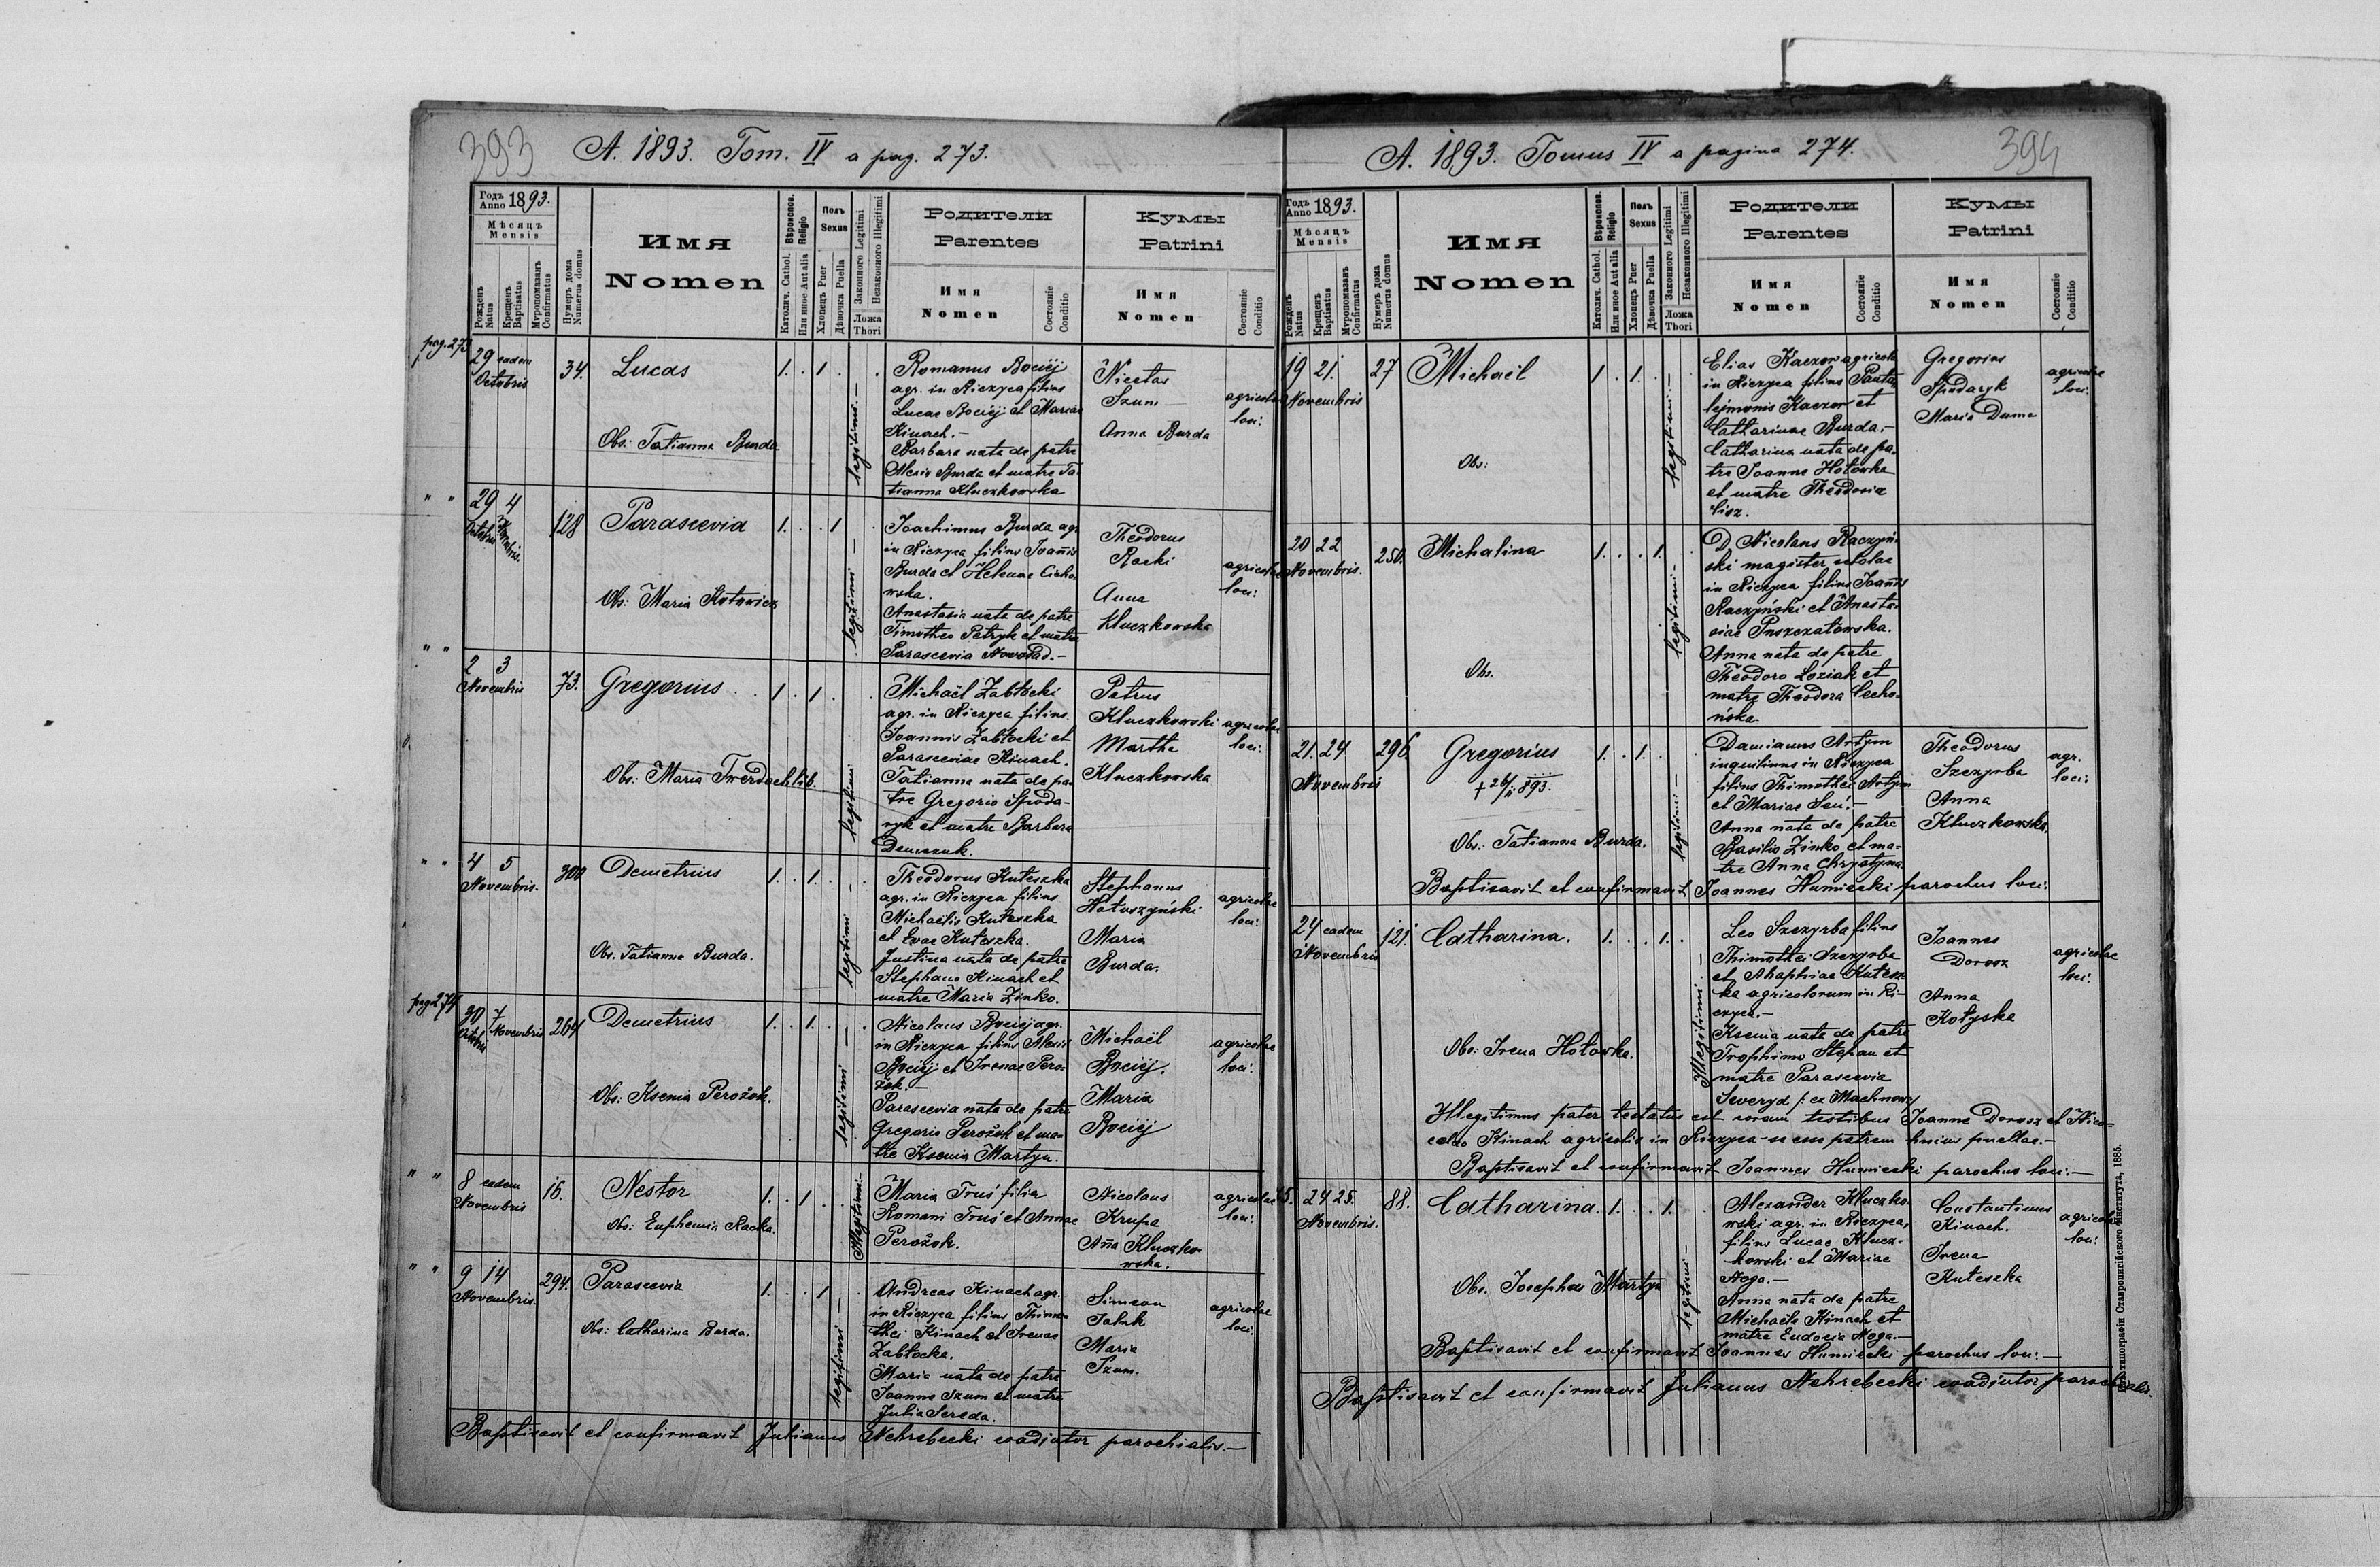 393
A. 1893. Tom. IV a pag. 273.
Годъ Anno 1893.
Мѣсяцъ
Mensis
Рожденъ Natus
Крещенъ Baptisatus
Мѵропомазанъ Confirmatus
Нумеръ дома Numerus domus
Имя
Nomen
Вѣроиспов. Religio
Католич. Cathol.
Или иное Aut alia
Полъ
Sexus
Хлопецъ Puer
Дѣвочка Puella
Законного Legitimi
Незаконного Illegitimi
Ложа
Thori
Родители
Parentes
Имя
Nomen
Состояніе
Conditio
Кумы
Patrini
Имя
Nomen
Состояніе
Conditio
pag. 273
29 eadem
Octobris
34.
Lucas
1. . 1 . .
Obs: Tatianna Burda
legitimi
Romanus Bociej
agr. in Riczyca filius
Lucae Bociej et Mariae
Kinach. –
Barbara nata de patre
Alexio Burda et matre Ta-
tianna Kluczkowska
Nicetas
Szum
Anna Burda
agricolae
loci:
" "
29 4
Octobris Novembris.
128
Parascevia
1. . . 1 .
Obs: Maria Kotowicz
legitimi –
Joachimus Burda agr.
in Riczyca filius Joannis
Burda et Helenae Cicho-
wska.
Anastasia nata de patre
Timotheo Petryk et matre
Parascevia Nowosad. –
Theodorus
Racki
Anna
Kluczkowska
agricolae
loci:
" "
2 3
Novembris
73.
Gregorius
1 . 1 . .
Obs: Maria Twerdochlib.
legitimi
Michaël Zabłocki
agr. in Riczyca filius
Joannis Zabłocki et
Parasceviae Kinach.
Tatianna nata de pa-
tre Gregorio Spoda-
ryk et matre Barbara
Demczuk.
Petrus
Kluczkowski
Martha
Kluczkowska
agricolae
loci:
" "
4 5
Novembris.
300
Demetrius
1. . 1.
Obs. Tatianna Burda.
legitimi –
Theodorus Kuteszka
agr. in Riczyca filius
Michaelis Kuteszka
et Evae Kuteszka.
Justina nata de patre
Stephano Kinach et
matre Maria Zinko.
Stephanus
Hołuszyński
Maria
Burda.
agricolae
loci:
pag. 274
30 7
Octobris Novembris
264
Demetrius
1. . 1. . .
Obs: Ksenia Perożok.
legitimi –
Nicolaus Bociej agr.
in Riczyca filius Alexii
Bociej et Irenae Pero-
żok. –
Parascevia nata de patre
Gregorio Perożok et ma-
tre Ksenia Martyn.
Michaël
Bociej.
Maria
Bociej
agricolae
loci:
" "
8 eadem
Novembris
16.
Nestor
1. . 1 . .
Obs: Euphemia Racka.
Illegitimi –
Maria Truś filia
Romani Truś et Annae
Perożok.
Nicolaus
Krupa
Anna Kluczko-
wska.
agricolae
loci:
" "
9 14
Novembris.
294.
Parascevia
1. . . 1 .
Obs: Catharina Burda.
legitimi –
Andreas Kinach agr.
in Riczyca filius Thimo-
thei Kinach et Irenae
Zabłocka.
Maria nata de patre
Joanne Szum et matre
Julia Sereda.
Simeon
Maria
Szum.
agricolae
loci:
Baptisavit et confirmavit Julianus Nehrebecki coadjutor parochialis. –
394
A. 1893. Tomus IV a pagina 274.
Годъ Anno 1893.
Мѣсяцъ
Mensis
Рожденъ Natus
Крещенъ Baptisatus
Мѵропомазанъ Confirmatus
Нумеръ дома Numerus domus
Имя
Nomen
Вѣроиспов. Religio
Католич. Cathol.
Или иное Aut alia
Полъ
Sexus
Хлопецъ Puer
Дѣвочка Puella
Законного Legitimi
Незаконного Illegitimi
Ложа
Thori
Родители
Parentes
Имя
Nomen
Состояніе
Conditio
Кумы
Patrini
Имя
Nomen
Состояніе
Conditio
19 21.
Novembris
27
Michaël
1 . 1. .
Obs:
legitimi –
Elias Kaczor agricola
in Riczyca filius Panta-
lejmonis Kaczor et
Catharinae Burda. –
Catharina nata de pa-
tre Joanne Hołowka
et matre Theodosia
Cisz.
Gregorius
Spodaryk
Maria Duma
agricolae
loci:
20 22
Novembris.
250.
Michalina
1. . . 1. .
Obs.
legitimi –
D Nicolaus Raczyń-
ski magister scholae
in Riczyca filius Joannis
Raczyński et Anasta-
siae Puszczałowska.
Anna nata de patre
Theodoro Loziak et
matre Theodora Cecho-
ńska
21. 24
Novembris
296
Gregorius
+ 26/11 893.
1. . 1. .
Obs: Tatianna Burda.
legitimi –
Damianus Artym
inquilinus in Riczyca
filius Thimothei Artym
et Mariae Seń. –
Anna nata de patre
Basilio Zinko et ma-
tre Anna Chrystyna
Theodorus
Szczyrba
Anna
Kluczkowska.
agr.
loci:
Baptisavit et confirmavit Joannes Humiecki parochus loci:
24 eadem
Novembris
121.
Catharina.
1. . . 1. .
Obs: Irena Hołowka.
Illegitimi –
Leo Szczyrba filius
Thimothei Szczyrba
et Ahaphiae Kutesz-
ka agricolorum in Ri-
czyca. –
Ksenia nata de patre
Trophimo Stepan et
matre Parascevia
Seweryd /: ex Machnow
Joannes
Dorosz
Anna
Kołyska
agricolae
loci:
Illegitimus pater testatus est coram testibus Joanne Dorosz et Nico-
lao Kinach agricolis in Riczyca se esse patrem huius puellae. –
Baptisavit et confirmavit Joannes Humiecki parochus loci: –
24 25.
Novembris.
88.
Catharina.
1. . . 1. .
Obs. Josepha Martyn
legitimi –
Alexander Kluczko-
wski agr. in Riczyca,
filius Lucae Klucz-
kowski et Mariae
Noga. –
Anna nata de patre
Michaële Kinach et
matre Eudocia Noga. –
Constantinus
Kinach.
Irena
Kuteszka
agricolae
loci:
Baptisavit et confirmavit Joannes Humiecki parochus loci: –
Baptisavit et confirmavit Julianus Nehrebecki coadjutor parochialis.
типографіи Ставропигійского Института, 1885.